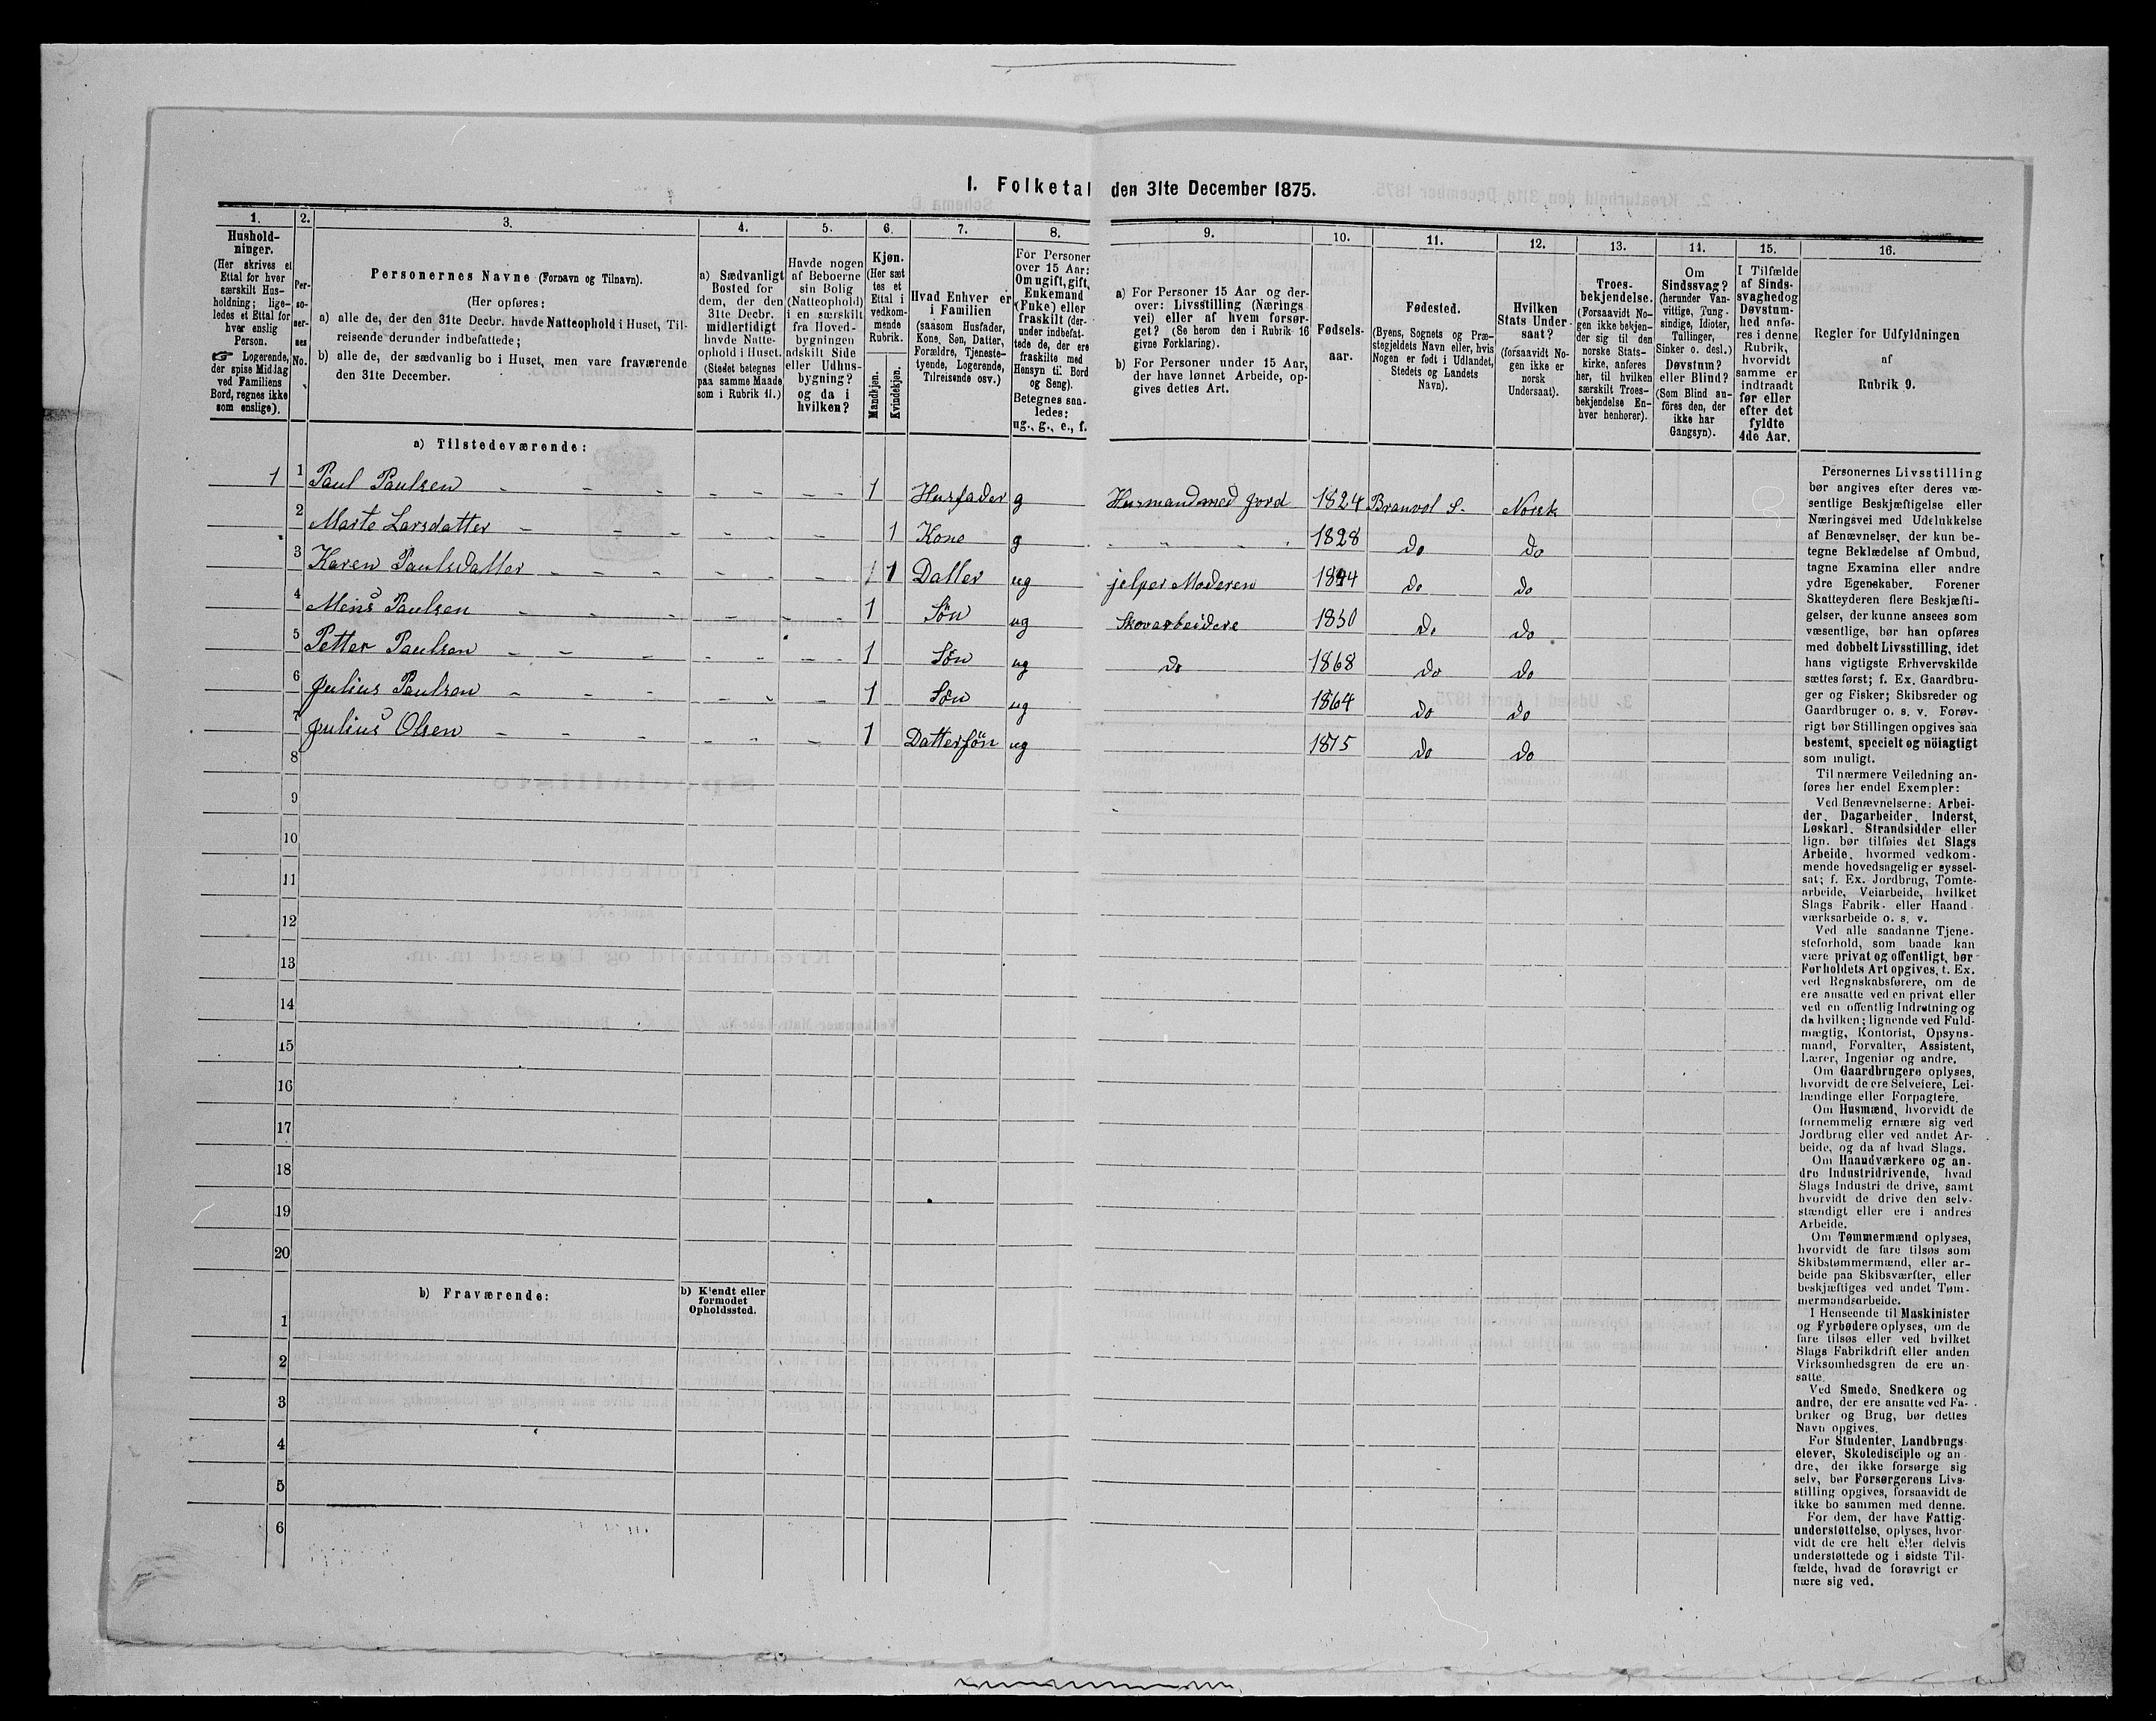 I. Folketal den 31te December 1875.
1.
Hushold-
ninger.
(Her skrives et
Ettal for hver
særskilt Hus-
holdning; lige-
ledes et Ettal for
hver enslig
Person.
☞ Logerende,
der spise Middag
ved Familiens
Bord, regnes ikke
som enslige).
2.
Per-
so-
ner-
nes
No.
3.
Personernes Navne (Fornavn og Tilnavn).
(Her opføres:
a) alle de, der den 31te Decbr. havde Natteophold i Huset, Til-
reisende derunder indbefattede;
b) alle de, der sædvanlig bo i Huset, men vare fraværende
den 31te December.
4.
a) Sædvanligt
Bosted for
dem, der den
31te Decbr.
midlertidigt
havde Natte-
ophold i Huset.
(Stedet betegnes
paa samme Maade
som i Rubrik 11.)
5.
Havde nogen
af Beboerne
sin Bolig
(Natteophold)
i en særskilt
fra Hoved-
bygningen
adskilt Side
eller Udhus-
bygning?
og da i
hvilken?
6.
Kjøn.
(Her sæt
tes et
Ettal i
vedkom-
mende
Rubrik.
Mandkjøn.
Kvindekjøn.
7.
Hvad Enhver er
i Familien
(saasom Husfader,
Kone, Søn, Datter,
Forældre, Tjeneste-
tyende, Logerende,
Tilreisende osv.)
8.
For Personer
over 15 Aar:
Om ugift, gift,
Enkemand
(Enke) eller
fraskilt (der-
under indbefat-
tede de, der ere
fraskilte med
Hensyn til Bord
og Seng).
Betegnes saa-
ledes:
ug., g., e., f.
9.
a) For Personer 15 Aar og der-
over: Livsstilling (Nærings
vei) eller af hvem forsør-
get? (Se herom den i Rubrik 16
givne Forklaring).
b) For Personer under 15 Aar,
der have lønnet Arbeide, op-
gives dettes Art.
10.
Fødsels-
aar.
11.
Fødested.
(Byens, Sognets og Præ-
stegjeldets Navn eller, hvis
Nogen er født i Udlandet,
Stedets og Landets
Navn).
12.
Hvilken
Stats Under
saat?
(forsaavidt No-
gen ikke er
norsk
Undersaat).
13.
Troes-
bekjendelse.
(Forsaavidt No-
gen ikke bekjen-
der sig til den
norske Stats-
kirke, anføres
her, til hvilken
særskilt Troes-
bekjendelse En-
hver henhører).
14.
Om
Sindssvag?
(herunder Van-
vittige, Tung-
sindige, Idioter,
Tullinger,
Sinker o. desl.)
Døvstum?
eller Blind?
(Som Blind an-
føres den, der
ikke har
Gangsyn).
15.
I Tilfælde
af Sinds-
svaghed og
Døvstum-
hed anfø-
res i denne
Rubrik,
hvorvidt
samme er
indtraadt
før eller
efter det
fyldte
4de Aar.
16.
Regler for Udfyldningen
af
Rubrik 9.
a) Tilstedeværende:
1 1 Paul Paulsen 1 Husfader g Husmand med Jord 1824 Branvol S. Norsk
2 Marte Larsdatter 1 Kone g 1828 Do Do
3 Karen Paulsdatter 1 Datter ug jelper Moderen Do Do
4 Mens Paulsen 1 Søn ug Skovarbeidere 1850 Do Do
5 Petter Paulsen 1 Søn ug do 1868 Do Do
6 Julius Paulsen 1 Søn ug 1864 Do Do
7 Julius Olsen 1 Dattersøn ug 1875 Do Do
8
9
10
11
12
13
14
15
16
17
18
19
20
b) Fraværende:
b) Kjendt eller
formodet
Opholdssted.
1
2
3
4
5
6
Personernes Livsstilling
bør angives efter deres væ-
sentlige Beskjæftigelse eller
Næringsvei med Udelukkelse
af Benævnelser, der kun be-
tegne Beklædelse af Ombud,
tagne Examina eller andre
ydre Egenskaber. Forener
Skatteyderen flere Beskjæfti-
gelser, der kunne ansees som
væsentlige, bør han opføres
med dobbelt Livsstilling, idet
hans vigtigste Erhvervskilde
sættes først; f. Ex. Gaardbru-
ger og Fisker; Skibsreder og
Gaardbruger o. s. v. Forøv-
rigt bør Stillingen opgives saa
bestemt, specielt og nöiagtigt
som muligt.
Til nærmere Veiledning an-
føres her endel Exempler:
Ved Benævnelserne: Arbei-
der, Dagarbeider, Inderst,
Løskarl, Strandsidder eller
lign. bør tilføies det Slags
Arbeide, hvormed vedkom-
mende hovedsagelig er syssel-
sat; f. Ex. Jordbrug, Tomte-
arbeide, Veiarbeide, hvilket
Slags Fabrik- eller Haand-
værksarbeide o. s. v.
Ved alle saadanne Tjene-
steforhold, som baade kan
være privat og offentligt, bør
Forholdets Art opgives, t. Ex.
ved Regnskabsførere, om de
ere ansatte ved en privat eller
ved en offentlig Indretning og
da hvilken; lignende ved Fuld-
mægtig, Kontorist, Opsyns-
mand, Forvalter, Assistent,
Lærer, Ingeniør og andre.
Om Gaardbrugere oplyses,
hvorvidt de ere Selveiere, Lei-
lændinge eller Forpagtere.
Om Husmænd, hvorvidt de
fornemmelig ernære sig ved
Jordbrug eller ved andet Ar-
beide, og da af hvad Slags.
Om Haandværkere og an-
dre Industridrivende, hvad
Slags Industri de drive, samt
hvorvidt de drive den selv-
stændigt eller ere i andres
Arbeide.
Om Tømmermænd oplyses,
hvorvidt de fare tilsøs som
Skibstømmermænd, eller ar-
beide paa Skibsværfter, eller
beskjæftiges ved andet Tøm-
mermandsarbeide.
I Henseende til Maskinister
og Fyrbødere oplyses, om de
fare tilsøs eller ved hvilket
Slags Fabrikdrift eller anden
Virksomhedsgren de ere an-
satte.
Ved Smede, Snedkere og
andre, der ere ansatte ved Fa-
briker og Brug, bør dettes
Navn opgives.
For Studenter, Landbrugs-
elever, Skoledisciple og an-
dre, der ikke forsørge sig
selv, bør Forsørgerens Livs-
stilling opgives, forsaavidt de
ikke bo sammen med denne.
For dem, der have Fattig-
understøttelse, oplyses, hvor-
vidt de ere helt eller delvis
understøttede og i sidste Til-
fælde, hvad de forøvrigt er
nære sig ved.